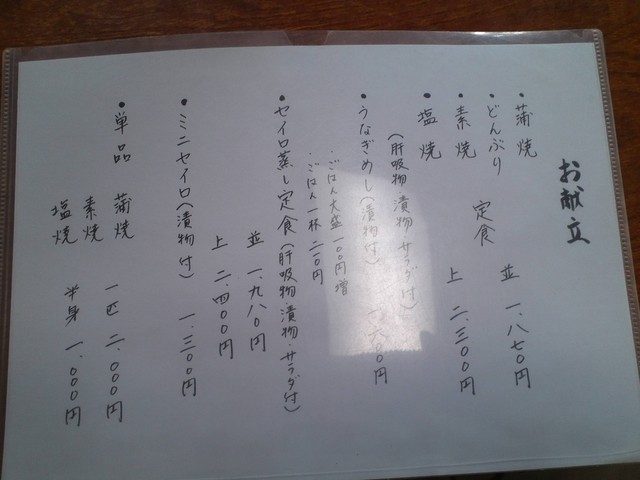 お献立
・蒲焼
・どんぶり 定食 並 一、八七〇円
・素焼 上 二、三〇〇円
・塩焼
(肝吸物・漬物・サラダ付)
・うなぎめし(漬物付) 一、六〇〇円
・ごはん大盛 一〇〇円増
・ごはん一杯 二一〇円
・セイロ蒸し定食(肝吸物・漬物・サラダ付)
並 一、九八〇円
上 二、四〇〇円
・ミニセイロ(漬物付) 一、三〇〇円
・単品 蒲焼 一匹 二、〇〇〇円
素焼
塩焼 半身 一、〇〇〇円